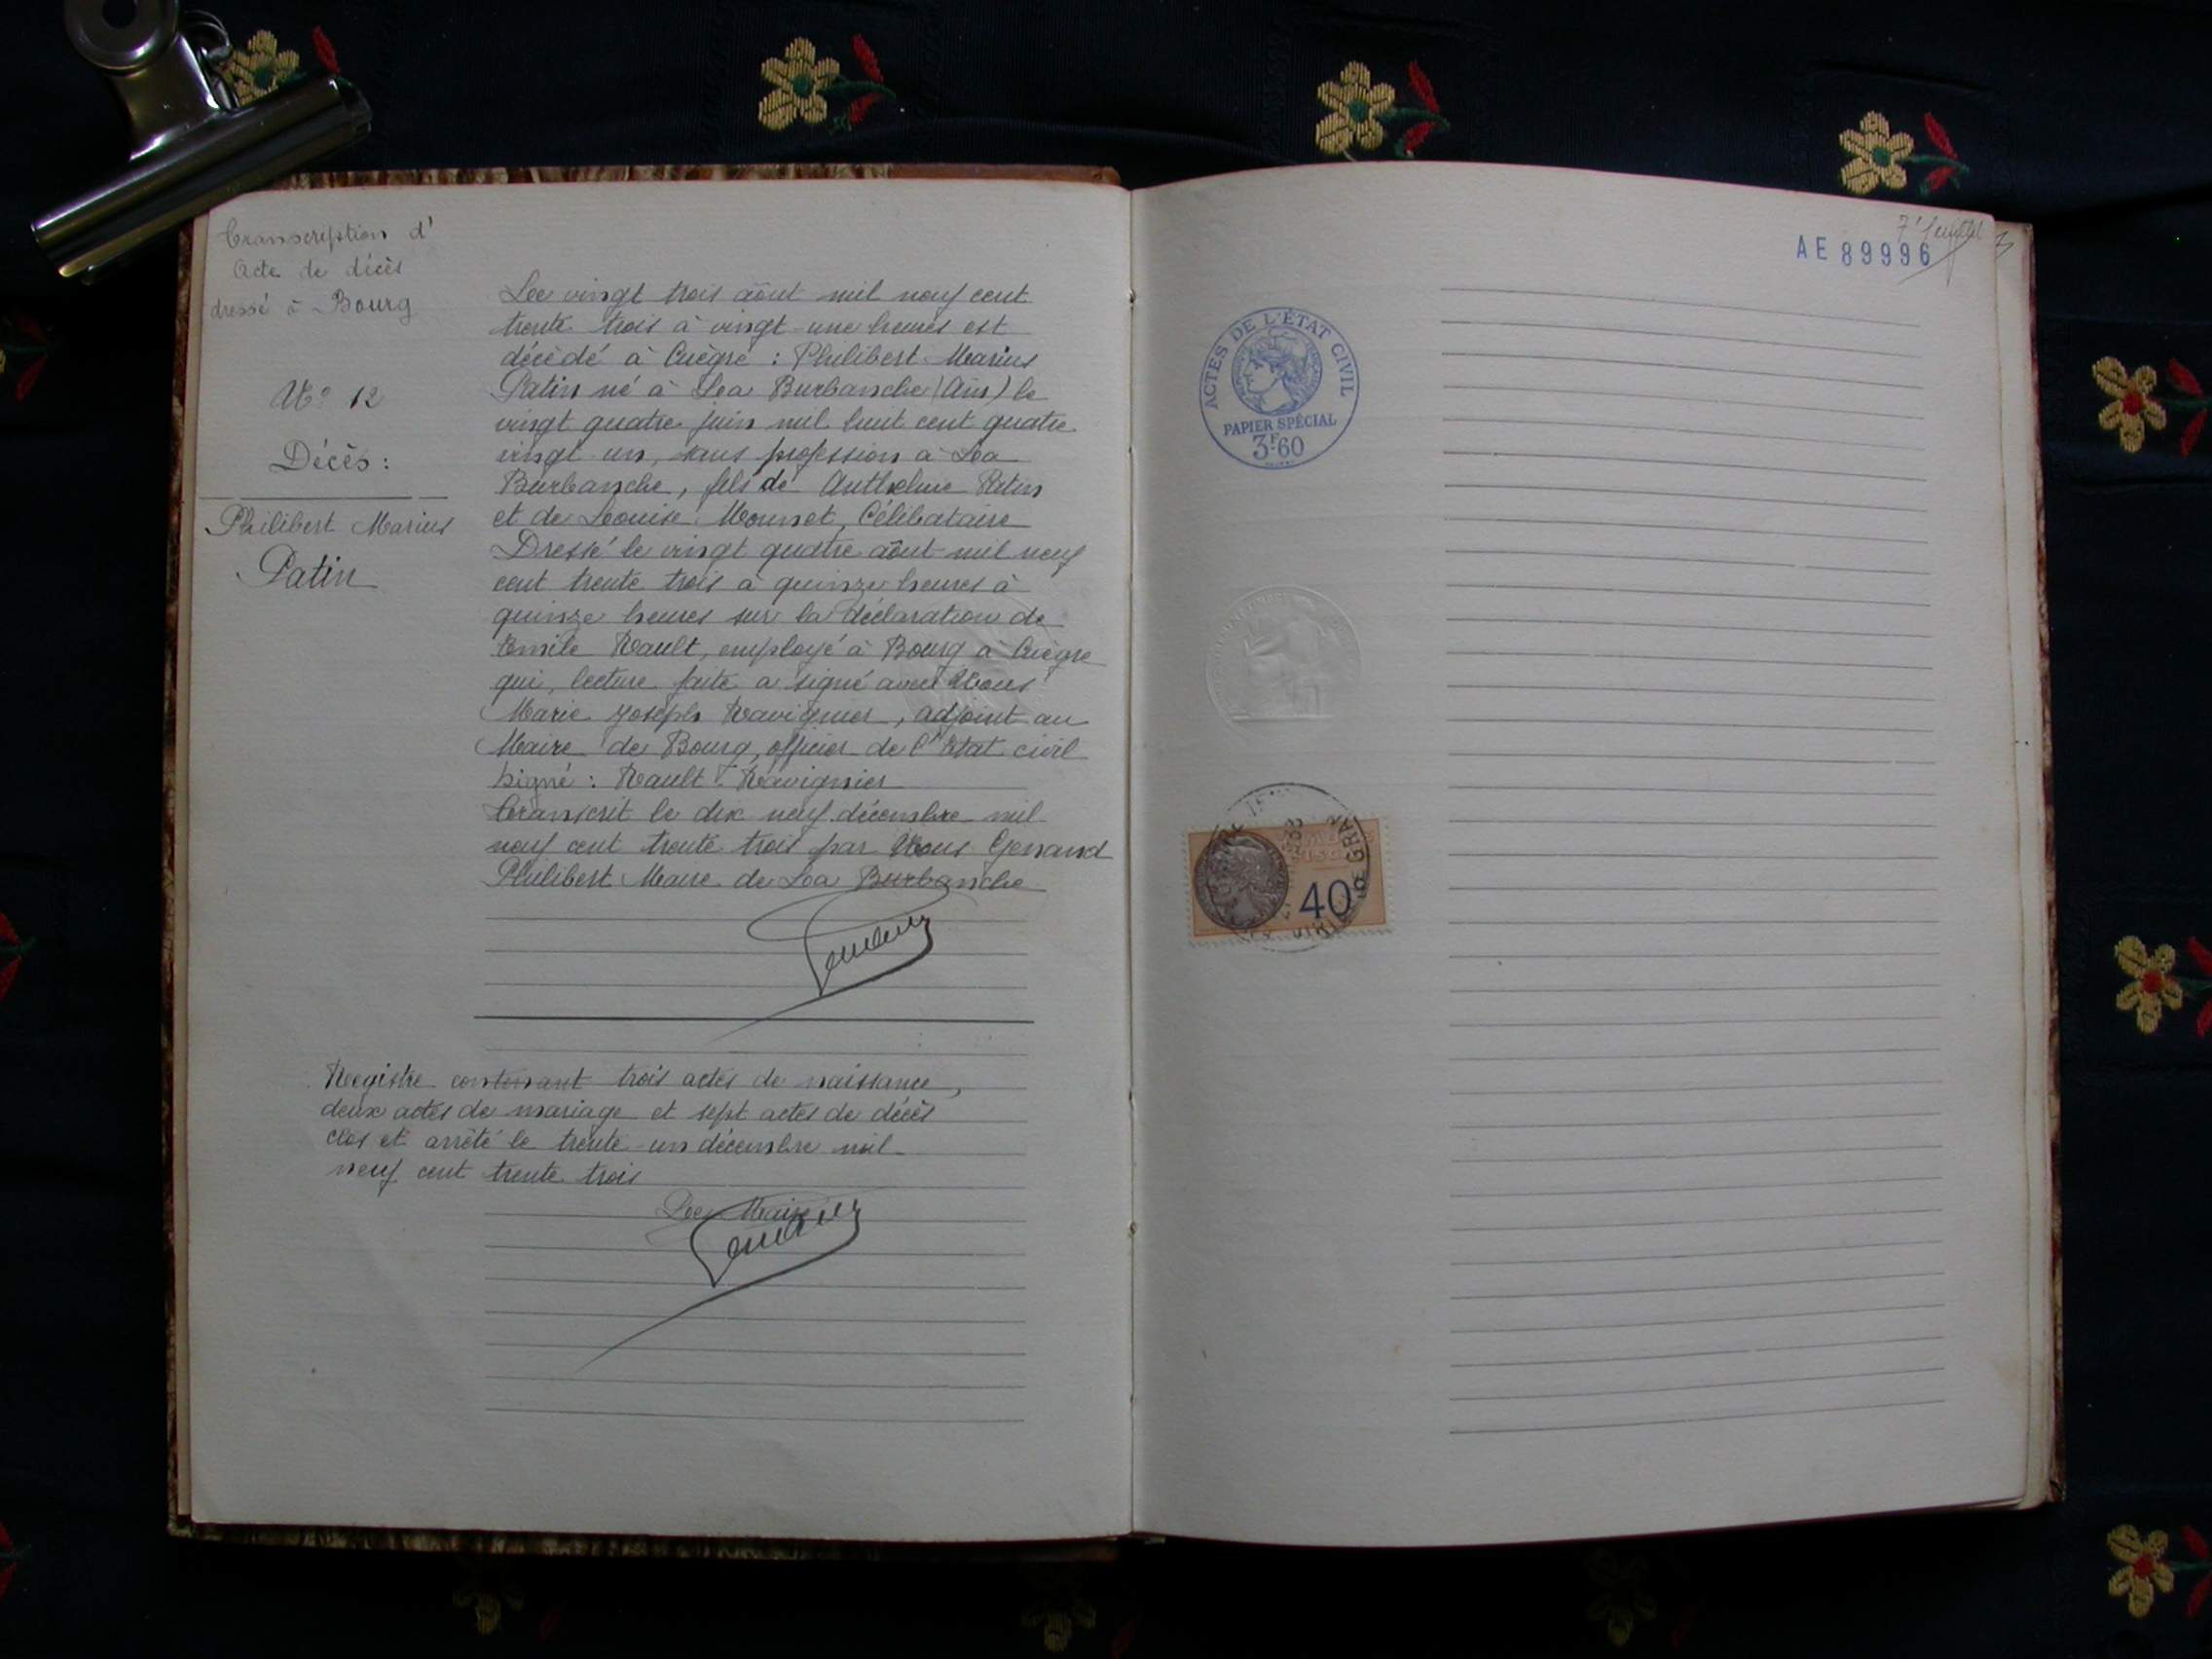 Transcription d'
Acte de décès
dressé à Bourg
N° 12
Décès:
Philibert Marius
Patin
Le vingt trois août mil neuf cent
trente trois à vingt une heures est
décédé à Cuègre : Philibert Marius
Patin né à La Burbanche (Ain) le
vingt quatre juin mil huit cent quatre
vingt un, sans profession à La
Burbanche, fils de Anthelme Patin
et de Louise Mounet, Célibataire
Dressé le vingt quatre août mil neuf
cent trente trois à quinze heures à
quinze heures sur la déclaration de
Emile Rault, employé à Bourg à Cuègre
qui, lecture faite a signé avec Nous
Marie Joseph Ravignier, adjoint au
Maire de Bourg, officier de l'Etat civil
Signé : Rault. Ravignier
Transcrit le dix neuf décembre mil
neuf cent trente trois par Nous
Philibert Maire de La Burbanche
Registre contenant trois actes de naissance,
deux actes de mariage et sept actes de décès
clos et arrêté le trente un décembre mil
neuf cent trente trois
Le Maire
AE 89996
ACTES DE L'ÉTAT CIVIL
PAPIER SPÉCIAL
3F.60
40